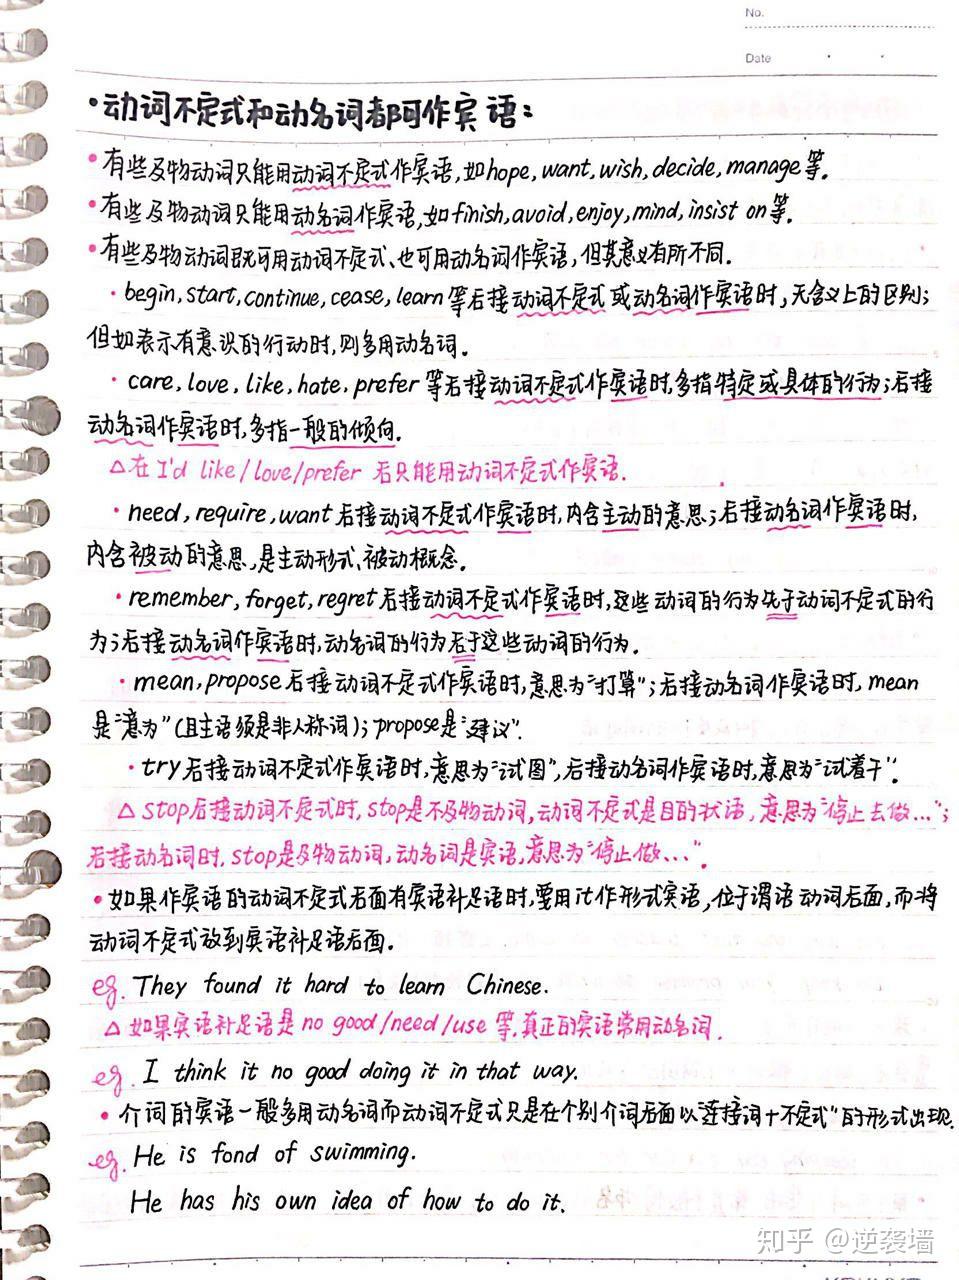 No.
Date
·动词不定式和动名词都可作宾语:
·有些及物动词只能用动词不定式作宾语,如hope,want,wish,decide,manage等.
·有些及物动词只能用动名词作宾语,如finish,avoid,enjoy,mind,insist on等.
·有些及物动词既可用动词不定式、也可用动名词作宾语,但其意义有所不同.
·begin,start,continue,cease,learn等后接动词不定式或动名词作宾语时,无含义上的区别;
但如表示有意识的行动时,则多用动名词。
·care,love,like,hate,prefer等后接动词不定式作宾语时,多指特定或具体的行为;后接
动名词作宾语时,多指一般的倾向.
△在I'd like/love/prefer 后只能用动词不定式作宾语.
·need,require,want后接动词不定式作宾语时,内含主动的意思;后接动名词作宾语时,
内含被动的意思,是主动形式、被动概念。
·remember,forget,regret后接动词不定式作宾语时,这些动词的行为先于动词不定式的行
为;后接动名词作宾语时,动名词的行为后于这些动词的行为.
·mean,propose后接动词不定式作宾语时,意思为"打算";后接动名词作宾语时,mean
是"意为"(且主语须是非人称词);propose是"建议".
·try后接动词不定式作宾语时,意思为"试图",后接动名词作宾语时,意思为"试着干".
△stop后接动词不定式时,stop是不及物动词,动词不定式是目的状语,意思为"停止去做...";
后接动名词时,stop是及物动词,动名词是宾语,意思为"停止做...".
·如果作宾语的动词不定式后面有宾语补足语时,要用it作形式宾语,位于谓语动词后面,而将
动词不定式放到宾语补足语后面.
eg. They found it hard to learn Chinese.
△如果宾语补足语是no good/need/use等,真正的宾语常用动名词.
eg. I think it no good doing it in that way.
·介词的宾语一般多用动名词而动词不定式只是在个别介词后面以"连接词+不定式"的形式出现.
eg. He is fond of swimming.
He has his own idea of how to do it.
知乎 @逆袭墙